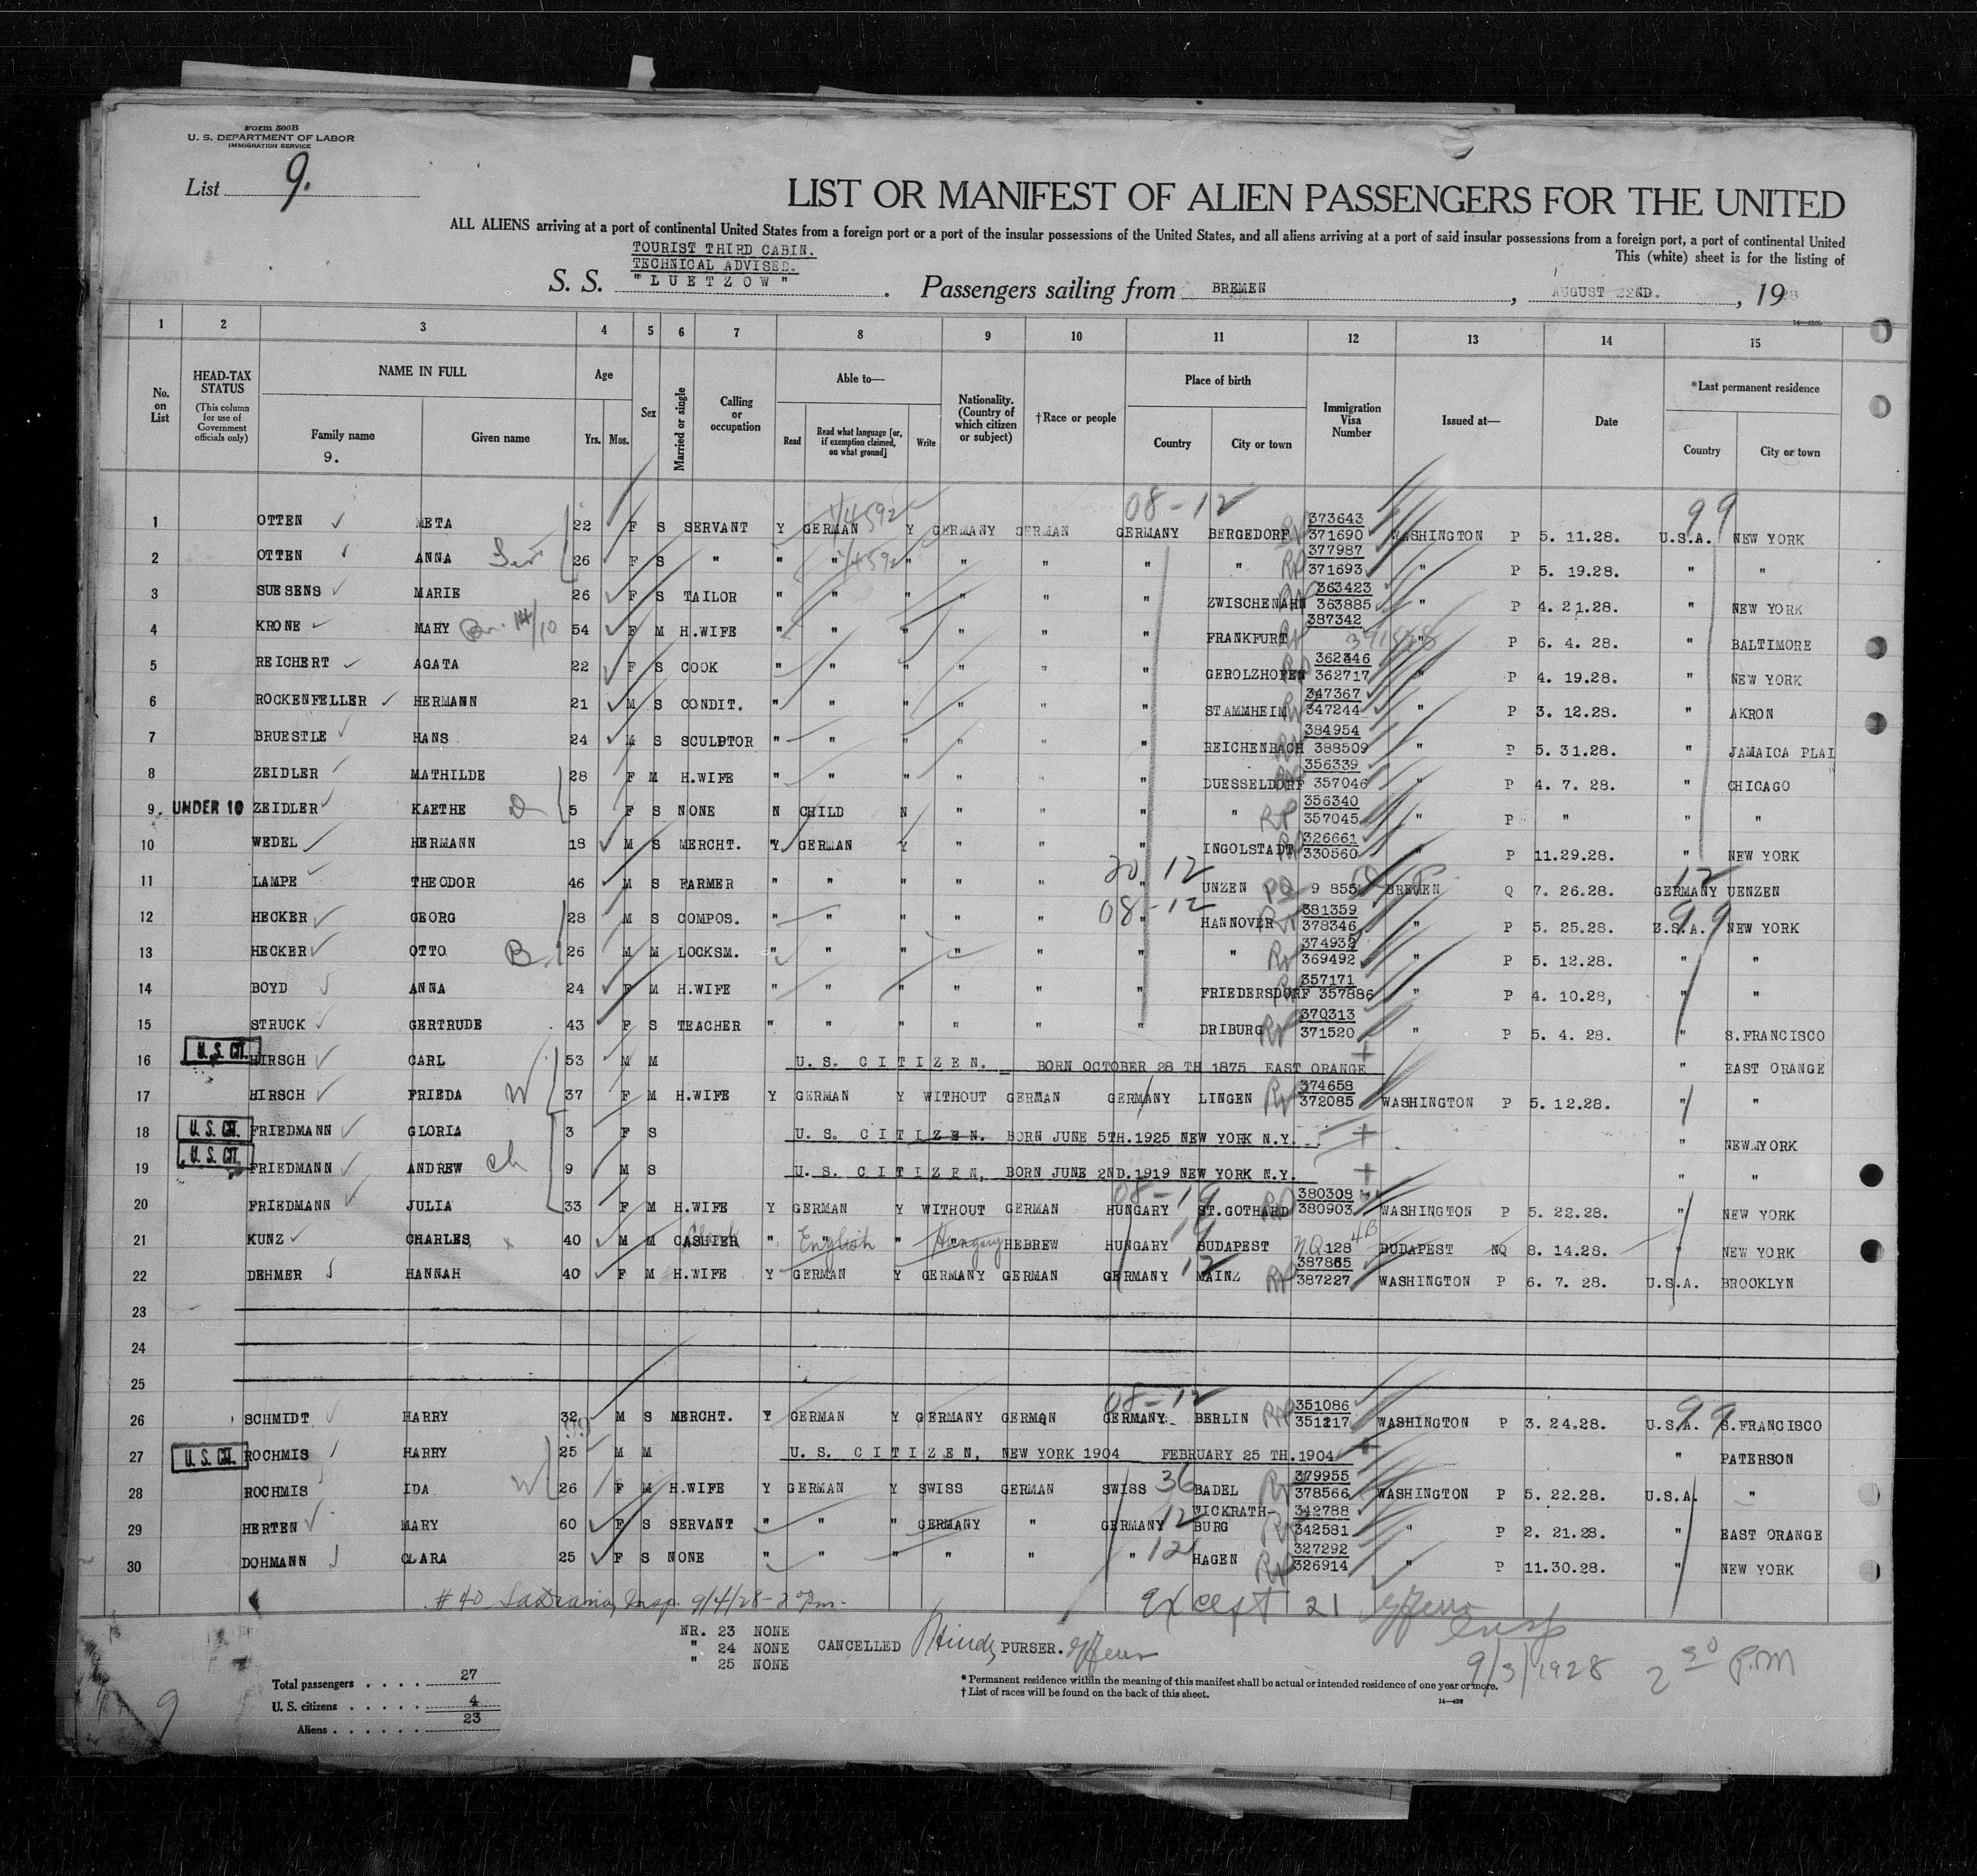 Form 500B
U. S. DEPARTMENT OF LABOR
IMMIGRATION SERVICE
List 9.
LIST OR MANIFEST OF ALIEN PASSENGERS FOR THE UNITED
ALL ALIENS arriving at a port of continental United States from a foreign port or a port of the insular possessions of the United States, and all aliens arriving at a port of said insular possessions from a foreign port, a port of continental United
This (white) sheet is for the listing of
TOURIST THIRD CABIN.
TECHNICAL ADVISED.
S. S. "LUETZOW". Passengers sailing from BREMEN, AUGUST 22ND., 1928
1 2 3 4 5 6 7 8 9 10 11 12 13 14 15
No. on List
HEAD-TAX STATUS (This column for use of Government officials only)
NAME IN FULL Family name Given name
9.
Age Yrs. Mos.
Sex
Married or single
Calling or occupation
Able to— Read Read what language [or, if exemption claimed, on what ground] Write
Nationality. (Country of which citizen or subject)
†Race or people
Place of birth Country City or town
Immigration Visa Number
Issued at—
Date
*Last permanent residence Country City or town
08-12 99
1 OTTEN META 22 F S SERVANT Y GERMAN Y GERMANY GERMAN GERMANY BERGEDORF 373643 371690 WASHINGTON P 5. 11.28. U.S.A. NEW YORK
2 OTTEN ANNA 26 F S " " " " " " " " 377987 371693 " P 5. 19.28. " "
3 SUESENS MARIE 26 F S TAILOR " " " " " " ZWISCHENAHN 363423 363885 " P 4. 21.28. " NEW YORK
4 KRONE MARY 54 F M H.WIFE " " " " " " FRANKFURT 387342 " P 6. 4. 28. " BALTIMORE
5 REICHERT AGATA 22 F S COOK " " " " " " GEROLZHOFEN 362346 362717 " P 4. 19.28. " NEW YORK
6 ROCKENFELLER HERMANN 21 M S CONDIT. " " " " " " STAMMHEIM 347367 347244 " P 3. 12.28. " AKRON
7 BRUESTLE HANS 24 M S SCULPTOR " " " " " " REICHENBACH 384954 388509 " P 5. 31.28. " JAMAICA PLAI
8 ZEIDLER MATHILDE 28 F M H.WIFE " " " " " " DUESSELDORF 356339 357046 " P 4. 7. 28. " CHICAGO
9. UNDER 10 ZEIDLER KAETHE 5 F S NONE N CHILD N " " " " 356340 357045 " P " " "
10 WEDEL HERMANN 18 M S MERCHT. Y GERMAN Y " " " INGOLSTADT 326661 330560 " P 11.29.28. " NEW YORK
20 12 12
11 LAMPE THEODOR 46 M S FARMER " " " " " " UNZEN 9 855 BREMEN Q 7. 26.28. GERMANY UENZEN
08-12 99
12 HECKER GEORG 28 M S COMPOS. " " " " " " HANNOVER 381359 378346 " P 5. 25.28. U.S.A. NEW YORK
13 HECKER OTTO 26 M M LOCKSM. " " " " " " " 374932 369492 " P 5. 12.28. " "
14 BOYD ANNA 24 F M H.WIFE " " " " " " FRIEDERSDORF 357171 357886 " P 4. 10.28, " "
15 STRUCK GERTRUDE 43 F S TEACHER " " " " " " DRIBURG 370313 371520 " P 5. 4. 28. " S.FRANCISCO
16 U.S. CIT. HIRSCH CARL 53 M M U.S. CITIZEN. BORN OCTOBER 28 TH 1875 EAST ORANGE " EAST ORANGE
17 HIRSCH FRIEDA W 37 F M H.WIFE Y GERMAN Y WITHOUT GERMAN GERMANY LINGEN 374658 372085 WASHINGTON P 5. 12.28. " "
18 U.S. CIT. FRIEDMANN GLORIA 3 F S U.S. CITIZEN. BORN JUNE 5TH.1925 NEW YORK N.Y. " NEW YORK
19 U.S. CIT. FRIEDMANN ANDREW ch 9 M S U.S. CITIZEN, BORN JUNE 2ND.1919 NEW YORK N.Y. " "
08-19
20 FRIEDMANN JULIA 33 F M H.WIFE Y GERMAN Y WITHOUT GERMAN HUNGARY ST.GOTHARD 380308 380903 WASHINGTON P 5. 22.28. " NEW YORK
21 KUNZ CHARLES x 40 M M CASHIER Clerk " English " Hungary HEBREW HUNGARY BUDAPEST N.Q 128 4B BUDAPEST NQ 8. 14.28. " NEW YORK
22 DEHMER HANNAH 40 F M H.WIFE Y GERMAN Y GERMANY GERMAN GERMANY 12 MAINZ 387865 387227 WASHINGTON P 6. 7. 28. U.S.A. BROOKLYN
23
24
25
08-12 99
26 SCHMIDT HARRY 32 M S MERCHT. Y GERMAN Y GERMANY GERMAN GERMANY BERLIN 351086 351217 WASHINGTON P 3. 24.28. U.S.A. S.FRANCISCO
27 U.S. CIT. ROCHMIS HARRY 25 M M U.S. CITIZEN, NEW YORK 1904 FEBRUARY 25 TH.1904 " PATERSON
28 ROCHMIS IDA W 26 F M H.WIFE Y GERMAN Y SWISS GERMAN SWISS 36 BADEL 379955 378566 WASHINGTON P 5. 22.28. U.S.A. "
29 HERTEN MARY 60 F S SERVANT " " " GERMANY " GERMANY 12 WICKRATH-BURG 342788 342581 " P 2. 21.28. " EAST ORANGE
30 DOHMANN CLARA 25 F S NONE " " " " " " 12 HAGEN 327292 326914 " P 11.30.28. " NEW YORK
#40 Insp. 9/4/28
Except 21
Insp
NR. 23 NONE
" 24 NONE CANCELLED PURSER.
" 25 NONE
9/3/1928 2 30 P.M
Total passengers . . . . 27
U. S. citizens . . . . . 4
Aliens . . . . . . 23
9
* Permanent residence within the meaning of this manifest shall be actual or intended residence of one year or more.
† List of races will be found on the back of this sheet.